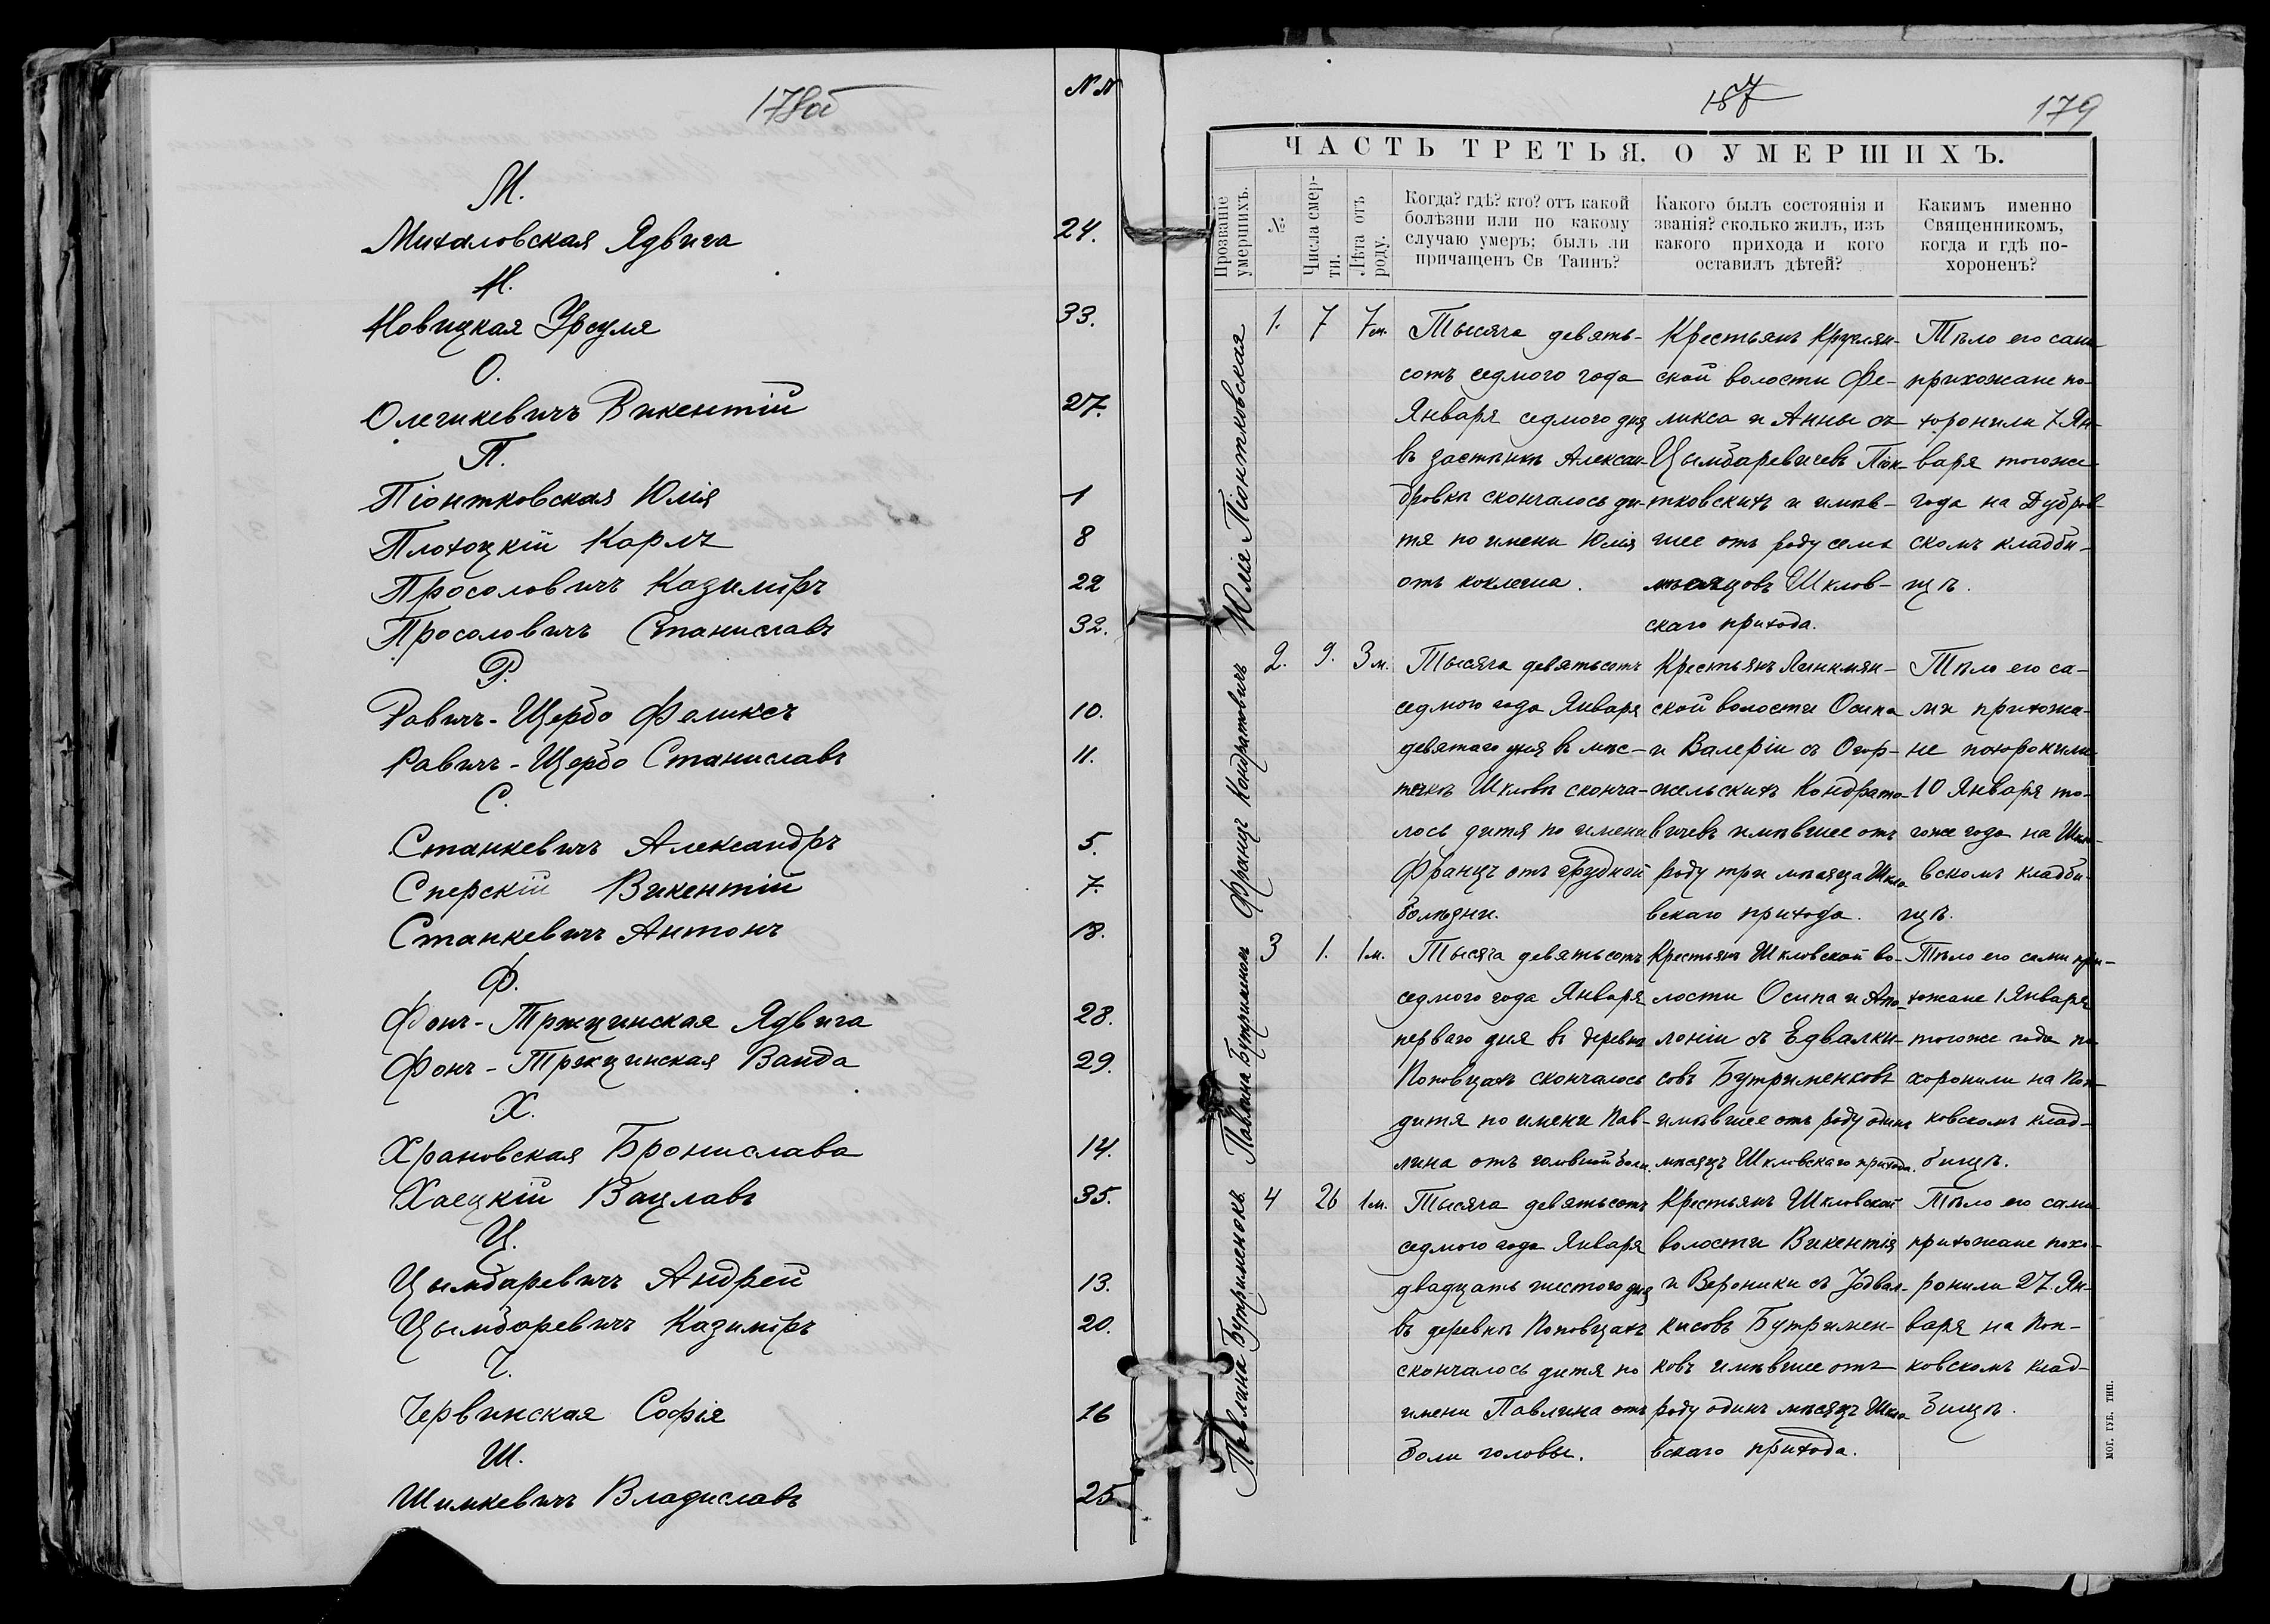 178об
NN
М.
Михаловская Ядвига 24.
Н.
Новицкая Урсуля 33.
О.
Олегикевичъ Викентій 27.
П.
Піонтковская Юлія 1
Плохоцкій Карлъ 8
Просоловичъ Казиміръ 22
Просоловичъ Станиславъ 32.
Р.
Равичъ-Щербо Феликсъ 10.
Равичъ-Щербо Станиславъ 11.
С.
Станкевичъ Александръ 5.
Сперскій Викентій 7.
Станкевичъ Антонъ 18.
Ф.
Фонъ-Тржцинская Ядвига 28.
Фонъ-Тржцинская Ванда 29.
Х.
Храновская Бронислава 14.
Хаецкій Вацлавъ 35.
Ц.
Цымбаревичъ Андрей 13.
Цымбаревичъ Казиміръ 20.
Ч.
Червинская Софія 16
Ш.
Шимкевичъ Владиславъ 25
187
179
ЧАСТЬ ТРЕТЬЯ. О УМЕРШИХЪ.
Прозваніе
умершихъ.
№
Числа смер-
ти.
Лѣта отъ
роду.
Когда? гдѣ? кто? отъ какой
болѣзни или по какому
случаю умеръ; былъ ли
причащенъ Св Таинъ?
Какого былъ состоянія и
званія? сколько жилъ, изъ
какого прихода и кого
оставилъ дѣтей?
Какимъ именно
Священникомъ,
когда и гдѣ по-
хороненъ?
Юлія Піонтковская
1. 7 7м.
Тысяча девять-
сотъ седмого года
Января седмого дня
въ застѣнкѣ Алексан-
дровкѣ скончалось ди-
тя по имени Юлія
отъ коклюша.
Крестьянъ Круглян-
ской волости Фе-
ликса и Анны съ
Цымбаревичевъ Піон-
тковскихъ и имѣв-
шее отъ роду семь
мѣсяцовъ Шклов-
скаго прихода.
Тѣло его сами
прихожане по-
хоронили 7 Ян-
варя тогоже
года на Дубров-
скомъ кладби-
щѣ.
Францъ Кондратовичъ
2. 9. 3м.
Тысяча девятьсотъ
седмого года Января
девятаго дня въ мѣс-
течкѣ Шкловѣ сконча-
лось дитя по имени
Францъ отъ грудной
болѣзни.
Крестьянъ
ской волости Осипа
и Валеріи съ Огор-
жельскихъ Кондрато-
вичевъ имѣвшее отъ
роду три мѣсяца Шкло
вскаго прихода.
Тѣло его са-
ми прихожа-
не похоронили
10 Января то-
гоже года на Шкло-
вскомъ кладби-
щѣ.
Павлина Бутрименокъ
3 1. 1м.
Тысяча девятьсотъ
седмого года Января
перваго дня въ деревнѣ
Поповцахъ скончалось
дитя по имени Пав-
лина отъ головной боли.
Крестьянъ Шкловской во-
лости Осипа и Апо-
лоніи съ Едвалки-
совъ Бутрименковъ
имѣвшее отъ роду одинъ
мѣсяцъ Шкловскаго прихода.
Тѣло его сами при-
хожане 1 Января
тогоже года по
хоронили на Поп-
ковскомъ клад-
бищѣ.
Павлина Бутрименокъ
4 26 1м.
Тысяча девятьсотъ
седмого года Января
двадцать шестого дня
въ деревнѣ Поповцахъ
скончалось дитя по
имени Павлина отъ
боли головы.
Крестьянъ Шкловской
волости Викентія
и Вероники съ Іодвал-
кисовъ Бутримен-
ковъ имѣвшее отъ
роду одинъ мѣсяцъ Шкло
вскаго прихода.
Тѣло его сами
прихожане похо-
ронили 27 Ян-
варя на Поп-
ковскомъ клад-
бищѣ.
МОГ. ГУБ. ТИП.